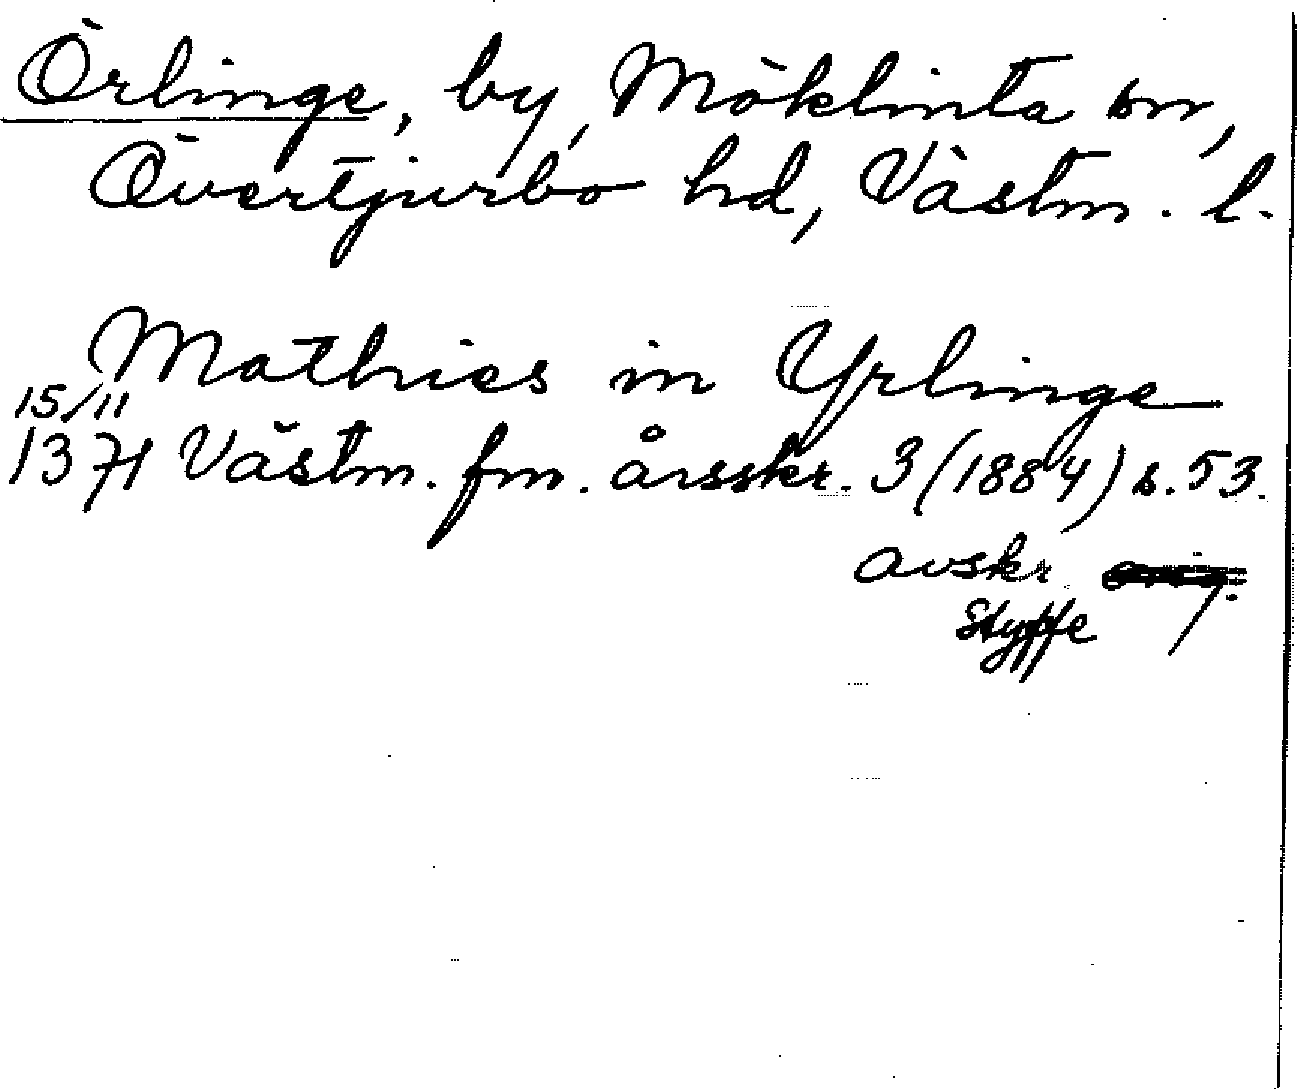 Örlinge, by, Möklinta sn,
Övertjurbo hd, Västm. l.
Mathies in Yrlinge
15/11
1371 Västm. fm. årsskr. 3 (1884) s. 53.
avskr
Styffe